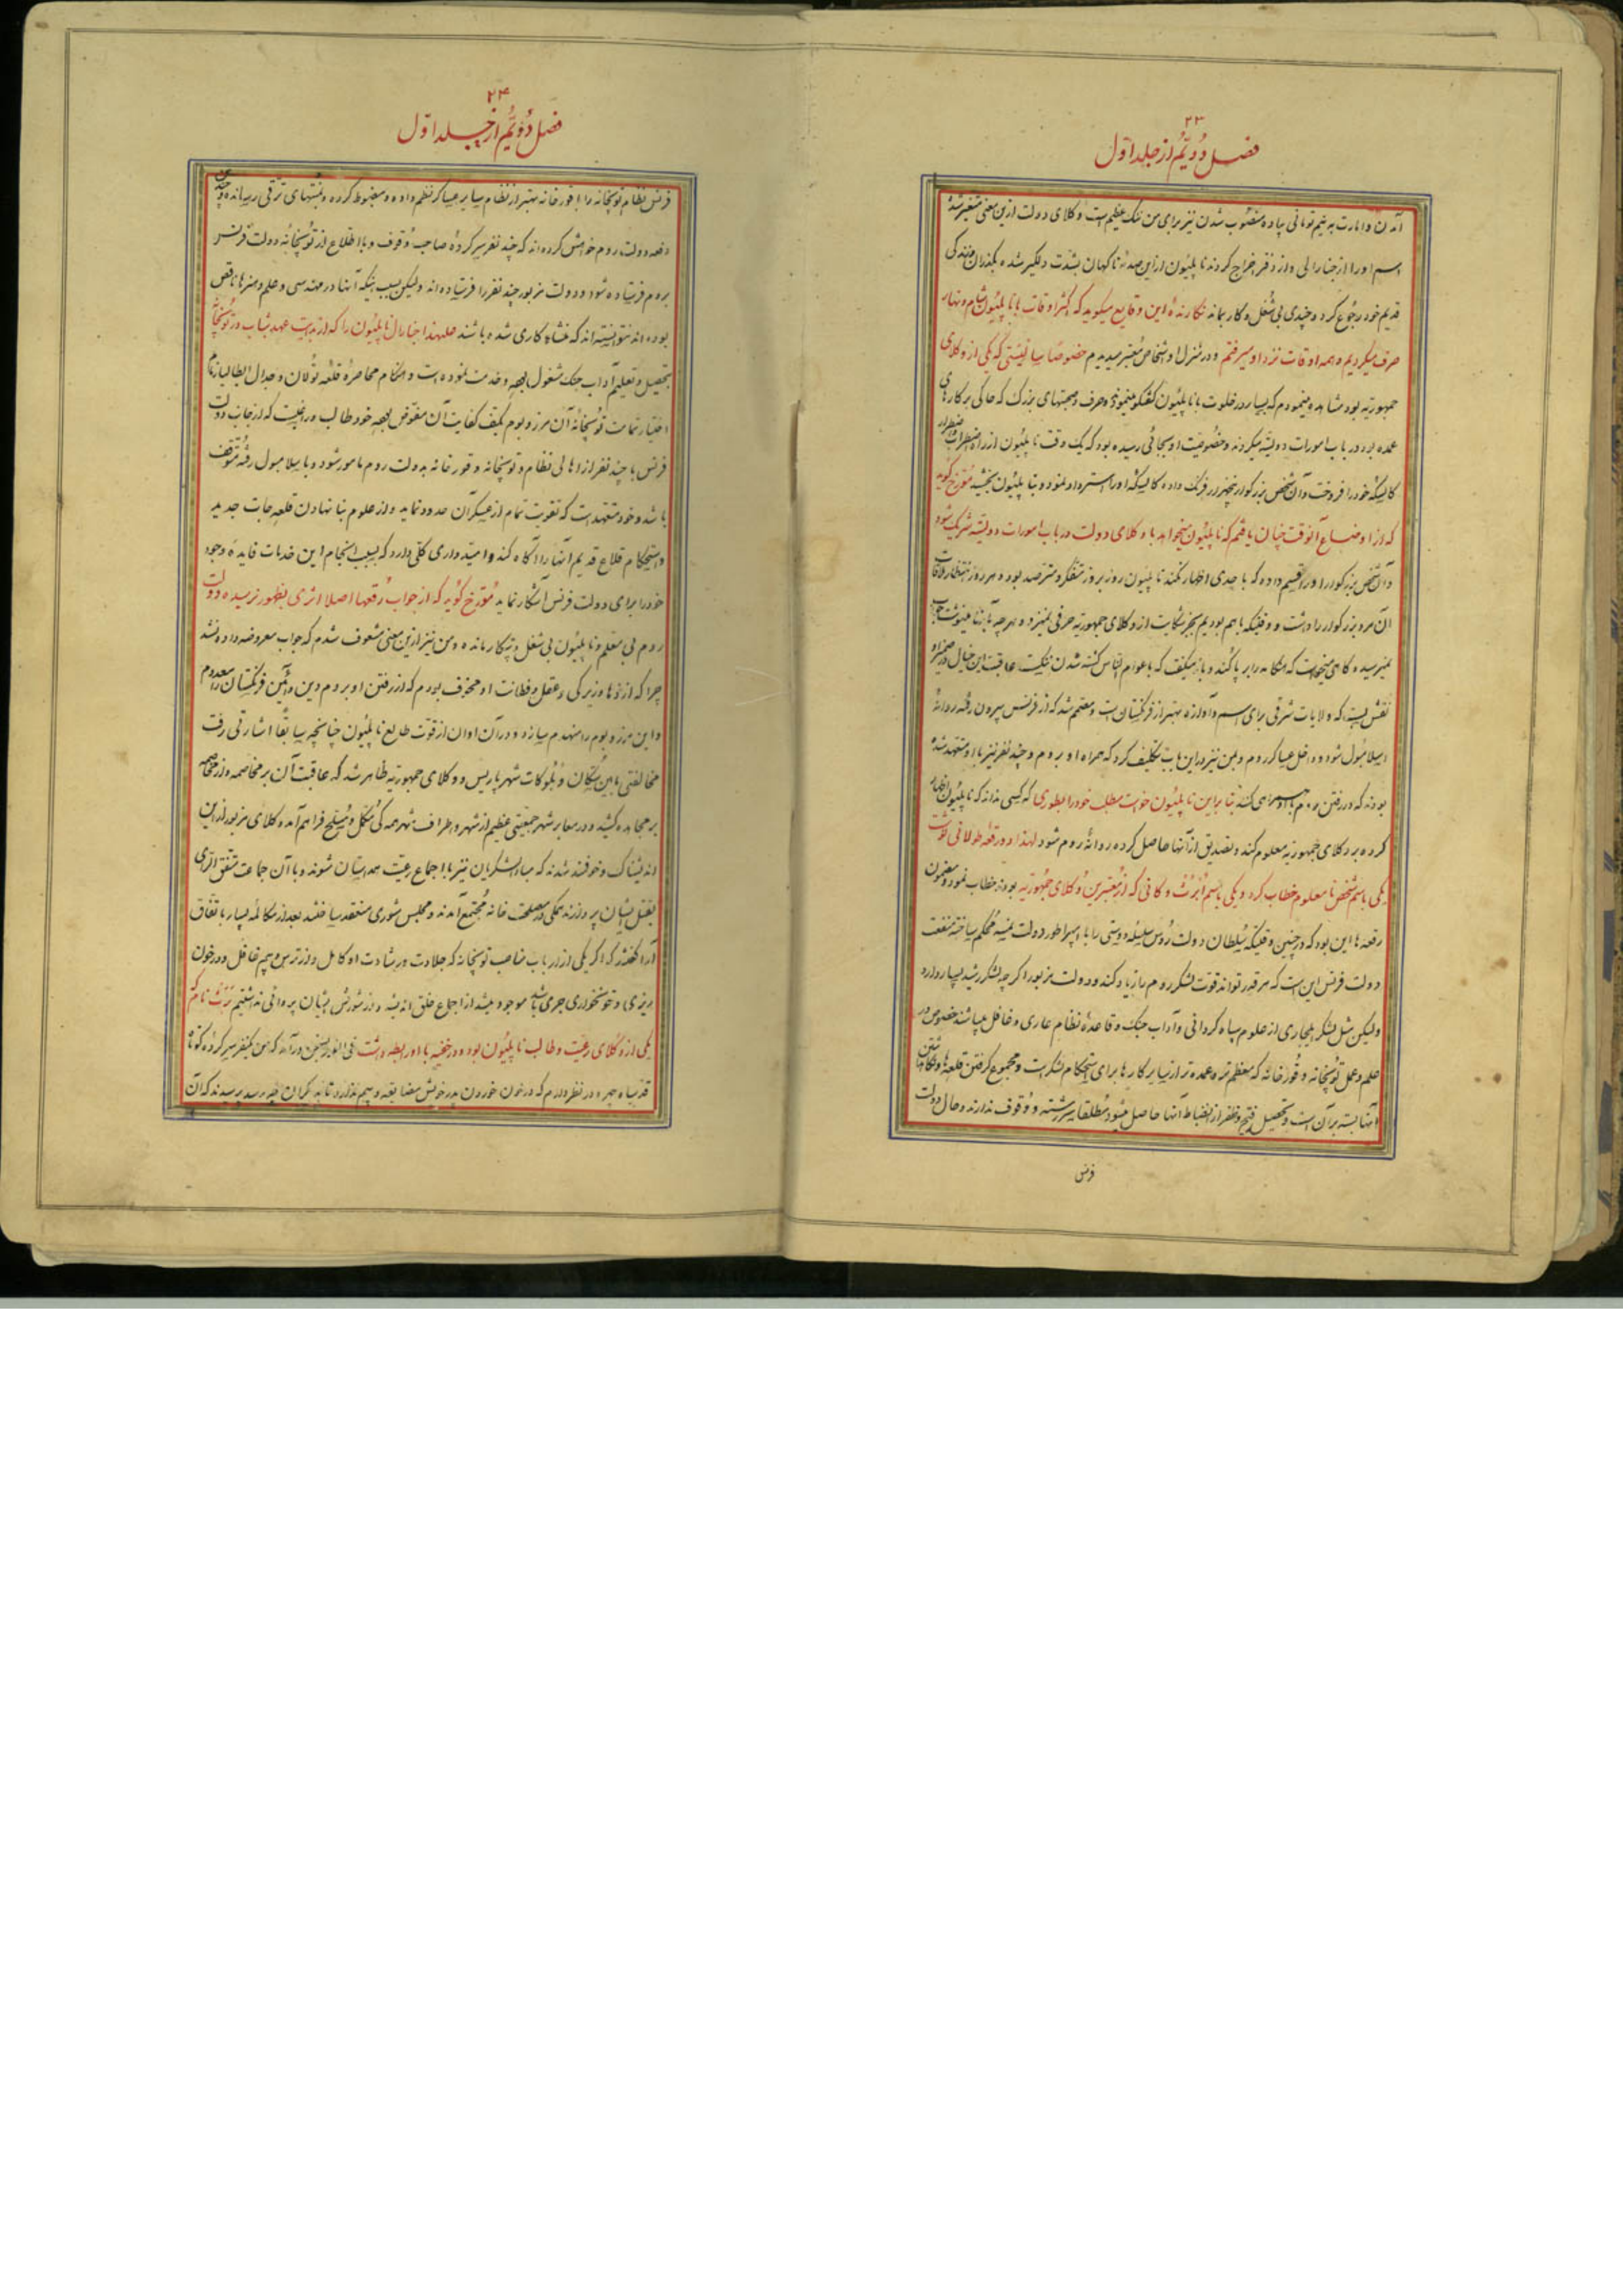 ۲۳
فصل دوّیّم از جلد اوّل
آمدن و امارت به نیم تومانی پیاده منصوب شدن نیز برای من ننک عظیم است وکلای دولت ازین معنی متغیر شده
اسم او را از جنارالی و از دفتر اخراج کردند ناپلیون ازاین صدمهٔ ناکهان بشدت دلکیر شده بکذران و زندکی
قدیم خود رجوع کرد و چندی بی شغل و کار بماند نکارندهٔ این وقایع میکوید که اکثر اوقات با ناپلیون شام و نهار
صرف میکردیم و همه اوقات نزد او میرفتم و در منزل او اشخاص معتبر میدیدم خصوصا سالیستی که یکی از وکلای
جمهوریه بود مشاهده مینمودم که بسیار در خلوت با ناپلیون کفتکو مینمودند و حرف و صحبتهای بزرک که حاکی بر کارهای
عمده بود در باب امورات دولتیه میکردند و خصوصیت او بجائی رسیده بود که یک وقت ناپلیون از راه اضطراب و اضطرار
کالسکهٔ خود را فروخت و آن شخص بزرکوار بخیه در فرنک داده کالسکه او را استرداد نمود و بنا پلیون بخشید مورخ کوید
که از اوضاع آنوقت چنان یافتم که ناپلیون میخواهد با وکلای دولت در باب امورات دولتیه شریک شود
و آن شخص بزرکوار او را قسم داده که با احدی اظهار نکند ناپلیون روز بروز متفکر و مترصد بوده هر روز انتظار ملاقات
آن مرد بزرکوار را داشت و وقتیکه با هم بودیم بجز شکایت از وکلای جمهوریه حرفی نمیزد و هرچه بآنها مینوشت جواب
نمیرسید و کاهی میخواست که هنکامه را برپا کند و باز میکفت که با عوام الناس کشته شدن نیکیست عاقبت این خیال در ضمیر او
نقش بست که ولایات شرقی برای اسم و آوازه بهتر از فرنکستان است و مصمم شد که از فرنس بیرون رفته روانهٔ
اسلامبول شود و داخل عساکر روم و بمن نیز در این باب تکلیف کرد که همراه او بروم و چند نفر نیز با او متعهد شده
بودند که در رفتن روم با او همراهی کنند بنا براین ناپلیون خواست مطلب خود را بطوری که کسی نداند که ناپلیون اظهار
کرده بر وکلای جمهوریه معلوم کند و تصدیق از آنها حاصل کرده روانهٔ روم شود لهذا دو رقعهٔ طولانی نوشت
یکی باسم شخص نامعلوم خطاب کرد و یکی باسم اُبرت و کانی که از معتبرین وکلای جمهوریه بودند خطاب نمود و مضمون
رقعه ها این بود که در چنین وقتیکه سلطان دولت روس سلسله دوستی را با امپراطور دولت نمسه محکم ساخته منفعت
دولت فرنس این است که هر قدر تواند قوت لشکر روم را زیاد کند و دولت مزبور اکرچه لشکر رشید بسیار دارد
ولیکن مثل لشکر یلیجاری از علوم سپاه کردانی و آداب جنک و قاعدهٔ نظام عاری و غافل میباشند خصوص در
علم و عمل توپخانه و قورخانه که معظم تر و عمده تر از سایر کارها برای استحکام لشکر است و مجموع کرفتن قلعه ها و نکاه داشتن
آنها بسته بر آن است و تحصیل فتح و ظفر از انضباط آنها حاصل میشود مطلقا سررشته و وقوف ندارند و حال دولت
فرنس
۲۴
فصل دوّیّم از جلد اوّل
فرنس نظام توپخانه را با قورخانه بهتر از نظام سایر عساکر نظم داده و مضبوط کرده و بمنتهای ترقی رسانده و چندین
دفعه دولت روم خواهش کرده اند که چند نفر سرکردهٔ صاحب وقوف و با اطلاع از توپخانهٔ دولت فرنس
بروم فرستاده شود و دولت مزبور چند نفر را فرستاده اند ولیکن بسبب اینکه آنها در مهندسی و علم و هنرها ناقص
بوده اند نتوانسته اند که منشاء کاری شده باشند علیهذا جنارال ناپلیون را که از بدایت عهد شباب در توپخانه
بتحصیل و تعلیم آداب جنک مشغول بوده و خدمت نموده است و هنکام محاصرهٔ قلعه تولان و جدال ایطالیا زمام
اختیار تمامت توپخانه آن مرز و بوم بکف کفایت آن مفوض بوده خود طالب و راغبست که از جانب دولت
فرنس با چند نفر از اهالی نظام و توپخانه و قورخانه بدولت روم مامور شود و باسلامبول رفته متوقف
باشد و خود متعهد است که تقویت تمام از عسکر آن حدود نماید و از علوم بنا نهادن قلعه جات جدید
و استحکام قلاع قدیم آنها را آکاه کند و امیدواری کلی دارد که بسبب انجام این خدمات فایدهٔ وجود
خود را برای دولت فرنس آشکار نماید مورخ کوید که از جواب رقعها اصلا اثری بظهور نرسیده دولت
روم بی معلم و ناپلیون بی شغل و بیکار مانده و من نیز ازین معنی مشعوف شدم که جواب معروضه داده نشد
چرا که از ذهاو زیرکی و عقل و فطانت او مخوف بودم که از رفتن او بروم دین و آئین فرنکستان را معدوم
و این مرز و بوم را منهدم سازد و در آن اوان از قوت طالع ناپلیون چنانچه سابقا اشارتی رفت
مخالفتی مابین سکان و بلوکات شهر پاریس و وکلای جمهوریه ظاهر شد که عاقبت آن بر مخاصمه و از مخاصمه
بر مجاهده کشید و در معابر شهر جمعیتی عظیم از شهر و اطراف شهر همه کی مکمل و مسلح فراهم آمده وکلای مزبور ازین
اندیشناک و خوفمند شدند که مبادا لشکریان نیز با اجماع رعیت همداستان شوند و با آن جماعت متفق الرای
بقتل ایشان پردازند همکی در مصلحت خانه مجتمع آمدند و مجلس شوری منعقد ساختند بعد از مکالمه بسیار باتفاق
آرا کفتند که اکر یکی از ارباب مناصب توپخانه که جلادت و رشادت او کامل و از ترس و بیم غافل و در خون
ریزی و خونخواری جری باشد موجود میشد از اجماع خلق اندیشه و از شورش ایشان پروائی نداشتیم ترث نام که
یکی از وکلای رعیت و طالب ناپلیون بود و در خفیه با او رابطه داشت فی الفور بسخن در آمد که من یکنفر سرکرده کوتاه
قد سیاه چهره در نظر دارم که در خون خوردن پدر خویش مضایقه و بیم ندارد تا بدیکران چه رسد پرسیدند که آن